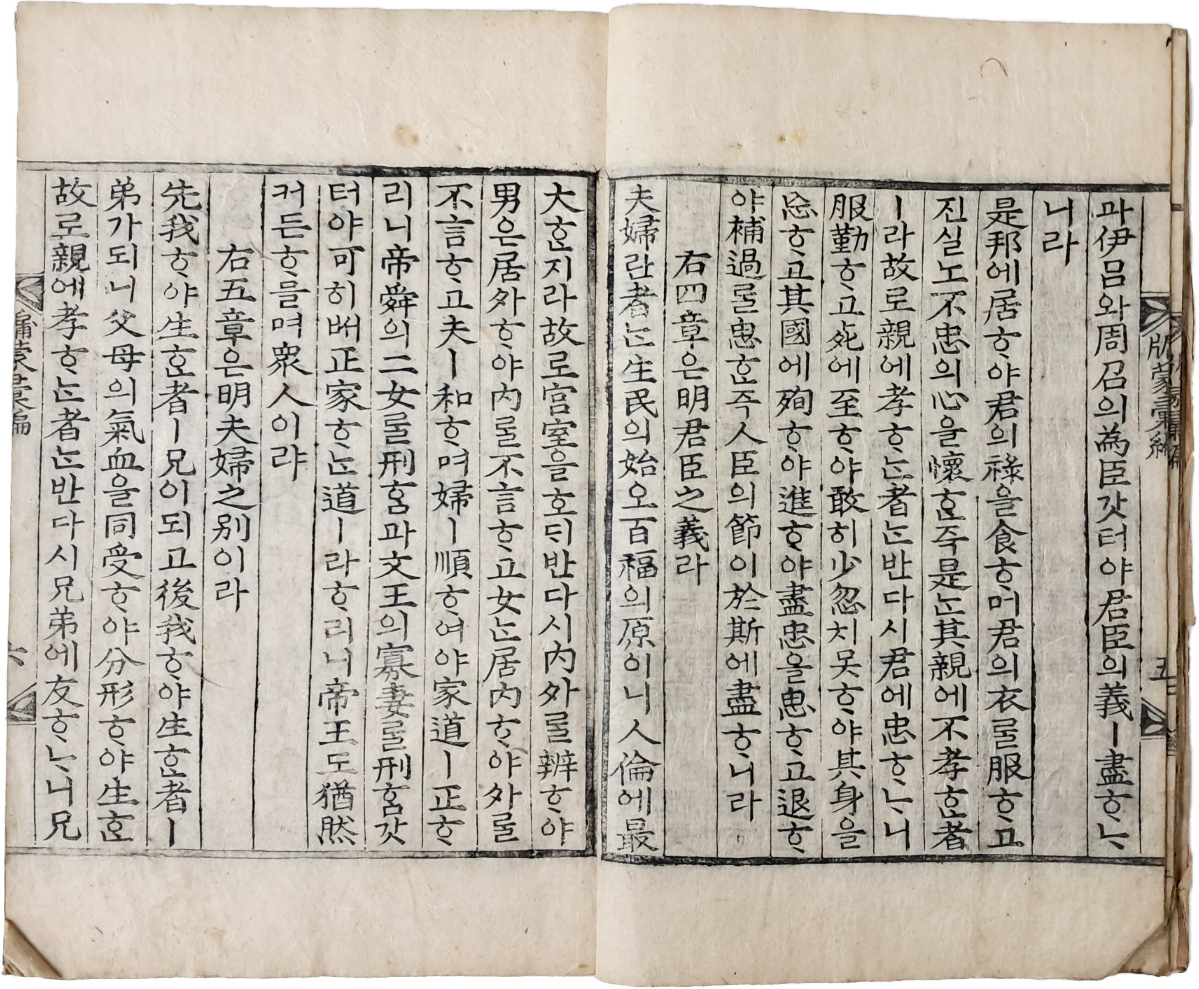 과伊呂와周召의爲臣갓터야君臣의義ㅣ盡ᄒᆞᄂᆞ
니라
是邦에居ᄒᆞ야君의祿을食ᄒᆞ며君의衣ᄅᆞᆯ服ᄒᆞ고
진실노不忠의心을懷ᄒᆞᆫ즉是ᄂᆞᆫ其親에不孝ᄒᆞᆫ者
ㅣ라故로親에孝ᄒᆞᄂᆞᆫ者ᄂᆞᆫ반다시君에忠ᄒᆞᄂᆞ니
服勤ᄒᆞ고死에至ᄒᆞ야敢히少忽치못ᄒᆞ야其身을
忘ᄒᆞ고其國에殉ᄒᆞ야進ᄒᆞ야盡忠을思ᄒᆞ고退ᄒᆞ
야補過ᄅᆞᆯ思ᄒᆞᆫ즉人臣의節이於斯에盡ᄒᆞ니라
右四章은明君臣之義라
夫婦란者ᄂᆞᆫ生民의始오百福의原이니人倫에最
五
大ᄒᆞᆫ지라故로宮室을ᄒᆞ되반다시內外ᄅᆞᆯ辨ᄒᆞ야
男은居外ᄒᆞ야內ᄅᆞᆯ不言ᄒᆞ고女ᄂᆞᆫ居內ᄒᆞ야外ᄅᆞᆯ
不言ᄒᆞ고夫ㅣ和ᄒᆞ며婦ㅣ順ᄒᆞ여야家道ㅣ正ᄒᆞ
리니帝舜의二女ᄅᆞᆯ刑홈과文王의寡妻ᄅᆞᆯ刑홈갓
터야可히ᄡᅥ正家ᄒᆞᄂᆞᆫ道ㅣ라ᄒᆞ리니帝王도猶然
커든ᄒᆞ믈며衆人이랴
右五章은明夫婦之別이라
先我ᄒᆞ야生ᄒᆞᆫ者ㅣ兄이되고後我ᄒᆞ야生ᄒᆞᆫ者ㅣ
弟가되니父母의氣血을同受ᄒᆞ야分形ᄒᆞ야生ᄒᆞᆫ
故로親에孝ᄒᆞᄂᆞᆫ者ᄂᆞᆫ반다시兄弟에友ᄒᆞᄂᆞ니兄
六